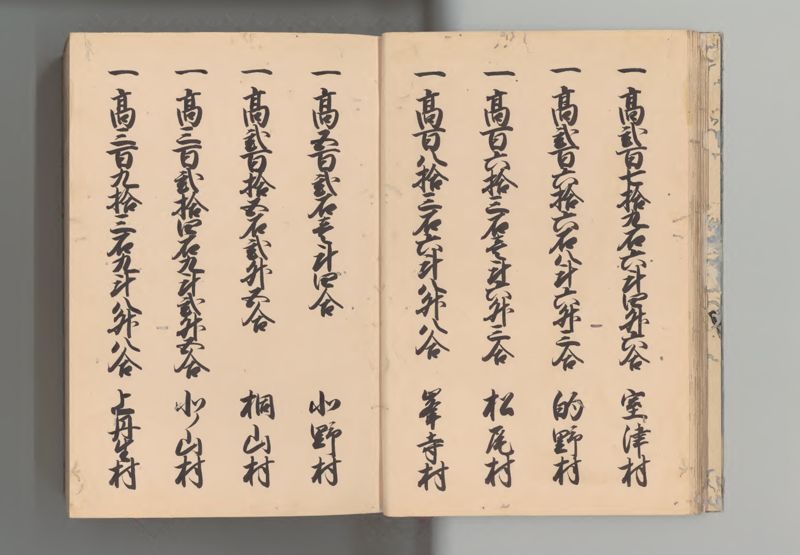 一 高貳百七拾九石六斗四升六合 室津村
一 高貳百六拾六石八斗六升三合 的野村
一 高百六拾三石壱斗六升三合 松尾村
一 高百八拾三石六斗八升八合 峯寺村
一 高五百貳石壱斗四合 小野村
一 高貳百拾五石貳升五合 桐山村
一 高三百貳拾四石九斗貳升五合 北ノ山村
一 高三百九拾三石九斗八升八合 上丹生村